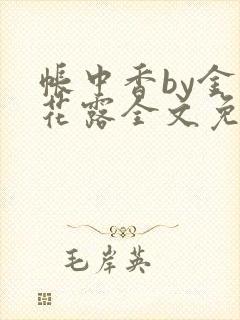 帐中香by金
花露全文免
毛岸英